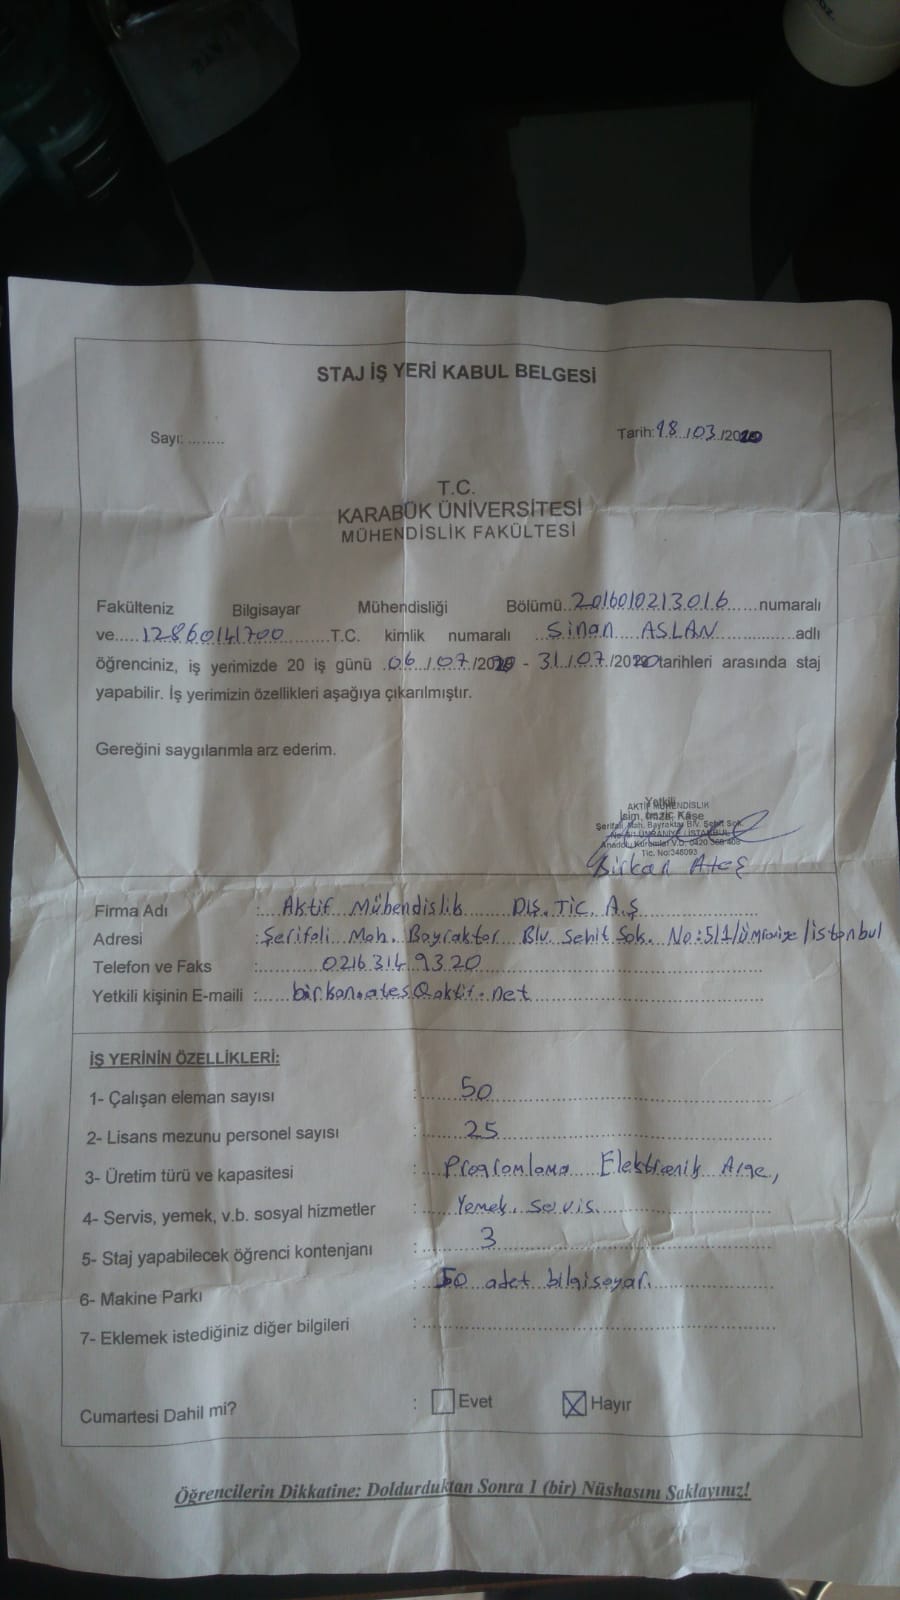 STAJ İŞ YERİ KABUL BELGESİ
Sayı: ........ Tarih: 18../03./2020
T.C.
KARABÜK ÜNİVERSİTESİ
MÜHENDİSLİK FAKÜLTESİ
Fakülteniz Bilgisayar Mühendisliği Bölümü..2016010213016......numaralı
ve.....12860141700..........T.C. kimlik numaralı ..Sinan ASLAN..........adlı
öğrenciniz, iş yerimizde 20 iş günü .06./07./2020 - 31./07./2020 tarihleri arasında staj
yapabilir. İş yerimizin özellikleri aşağıya çıkarılmıştır.
Gereğini saygılarımla arz ederim.
Yetkili
AKTİF MÜHENDİSLİK
İsim, İmza, Kaşe
Şerifali Mah. Bayraktar Blv. Şehit Sok.
ÜMRANİYE / İSTANBUL
Tic. No:
Birkan Ateş
Firma Adı :....Aktif Mühendislik DIŞ. TİC. A.Ş................
Adresi :Şerifali Mah. Bayraktar Blv. Şehit Sok. No:5/1/Ümraniye/İstanbul
Telefon ve Faks :............0216 314 9320..............................
Yetkili kişinin E-maili :......birkan.ates@aktif.net..............................
İŞ YERİNİN ÖZELLİKLERİ:
1- Çalışan eleman sayısı :........50..............................
2- Lisans mezunu personel sayısı :........25..............................
3- Üretim türü ve kapasitesi :....Programlama Elektronik Arge,
4- Servis, yemek, v.b. sosyal hizmetler :......Yemek, servis..............................
5- Staj yapabilecek öğrenci kontenjanı :..........3..............................
6- Makine Parkı :...50 adet bilgisayar...................
7- Eklemek istediğiniz diğer bilgileri :............................................................
Cumartesi Dahil mi? : Evet Hayır
Öğrencilerin Dikkatine: Doldurduktan Sonra 1 (bir) Nüshasını Saklayınız!